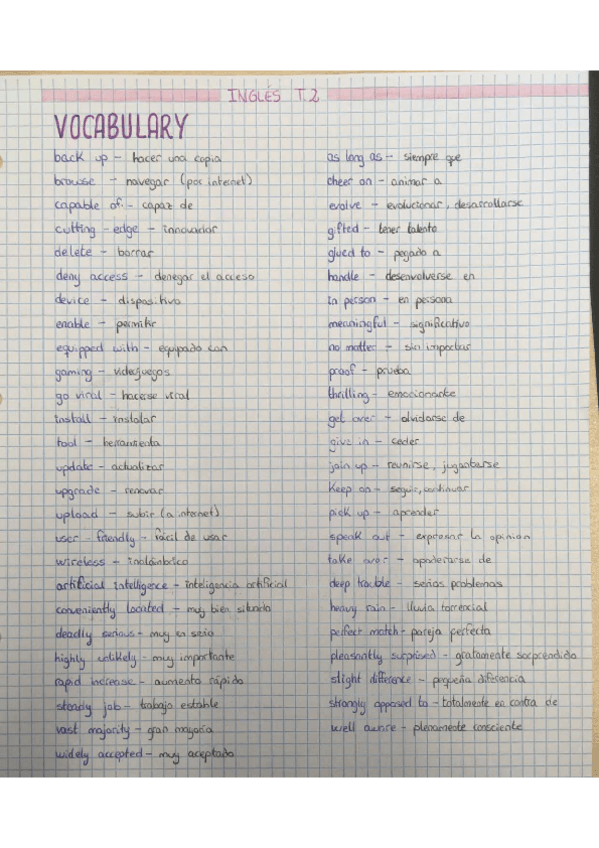 INGLÉS T.2
VOCABULARY
back up - hacer una copia
browse - navegar (por internet)
capable of - capaz de
cutting-edge - innovador
delete - borrar
deny access - denegar el acceso
device - dispositivo
enable - permitir
equipped with - equipado con
gaming - videojuegos
go viral - hacerse viral
install - instalar
tool - herramienta
update - actualizar
upgrade - renovar
upload - subir (a internet)
user-friendly - fácil de usar
wireless - inalámbrico
artificial intelligence - inteligencia artificial
conveniently located - muy bien situado
deadly serious - muy en serio
highly unlikely - muy importante
rapid increase - aumento rápido
steady job - trabajo estable
vast majority - gran mayoría
widely accepted - muy aceptado
as long as - siempre que
cheer on - animar a
evolve - evolucionar, desarrollarse
gifted - tener talento
glued to - pegado a
handle - desenvolverse en
in person - en persona
meaningful - significativo
no matter - sin importar
proof - prueba
thrilling - emocionante
get over - olvidarse de
give in - ceder
join up - reunirse,
keep on - seguir, continuar
pick up - aprender
speak out - expresar la opinion
take over - apoderarse de
deep trouble - serios problemas
heavy rain - lluvia torrencial
perfect match - pareja perfecta
pleasantly surprised - gratamente sorprendido
slight difference - pequeña diferencia
strongly opposed to - totalmente en contra de
well - plenamente consciente